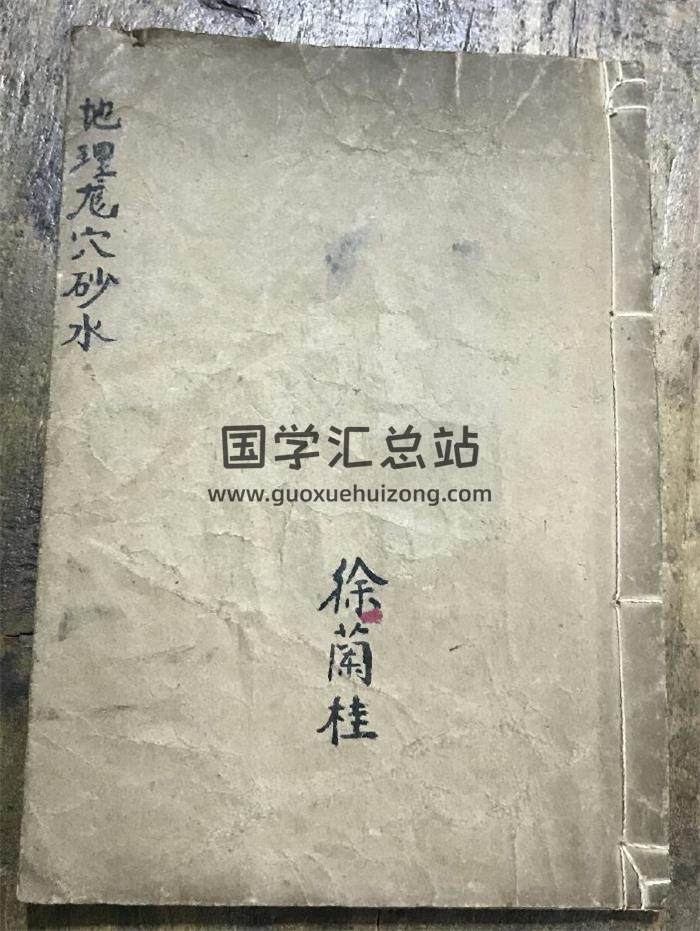 地理龙穴砂水
国学汇总站
www.guoxuehuizong.com
徐蘭桂